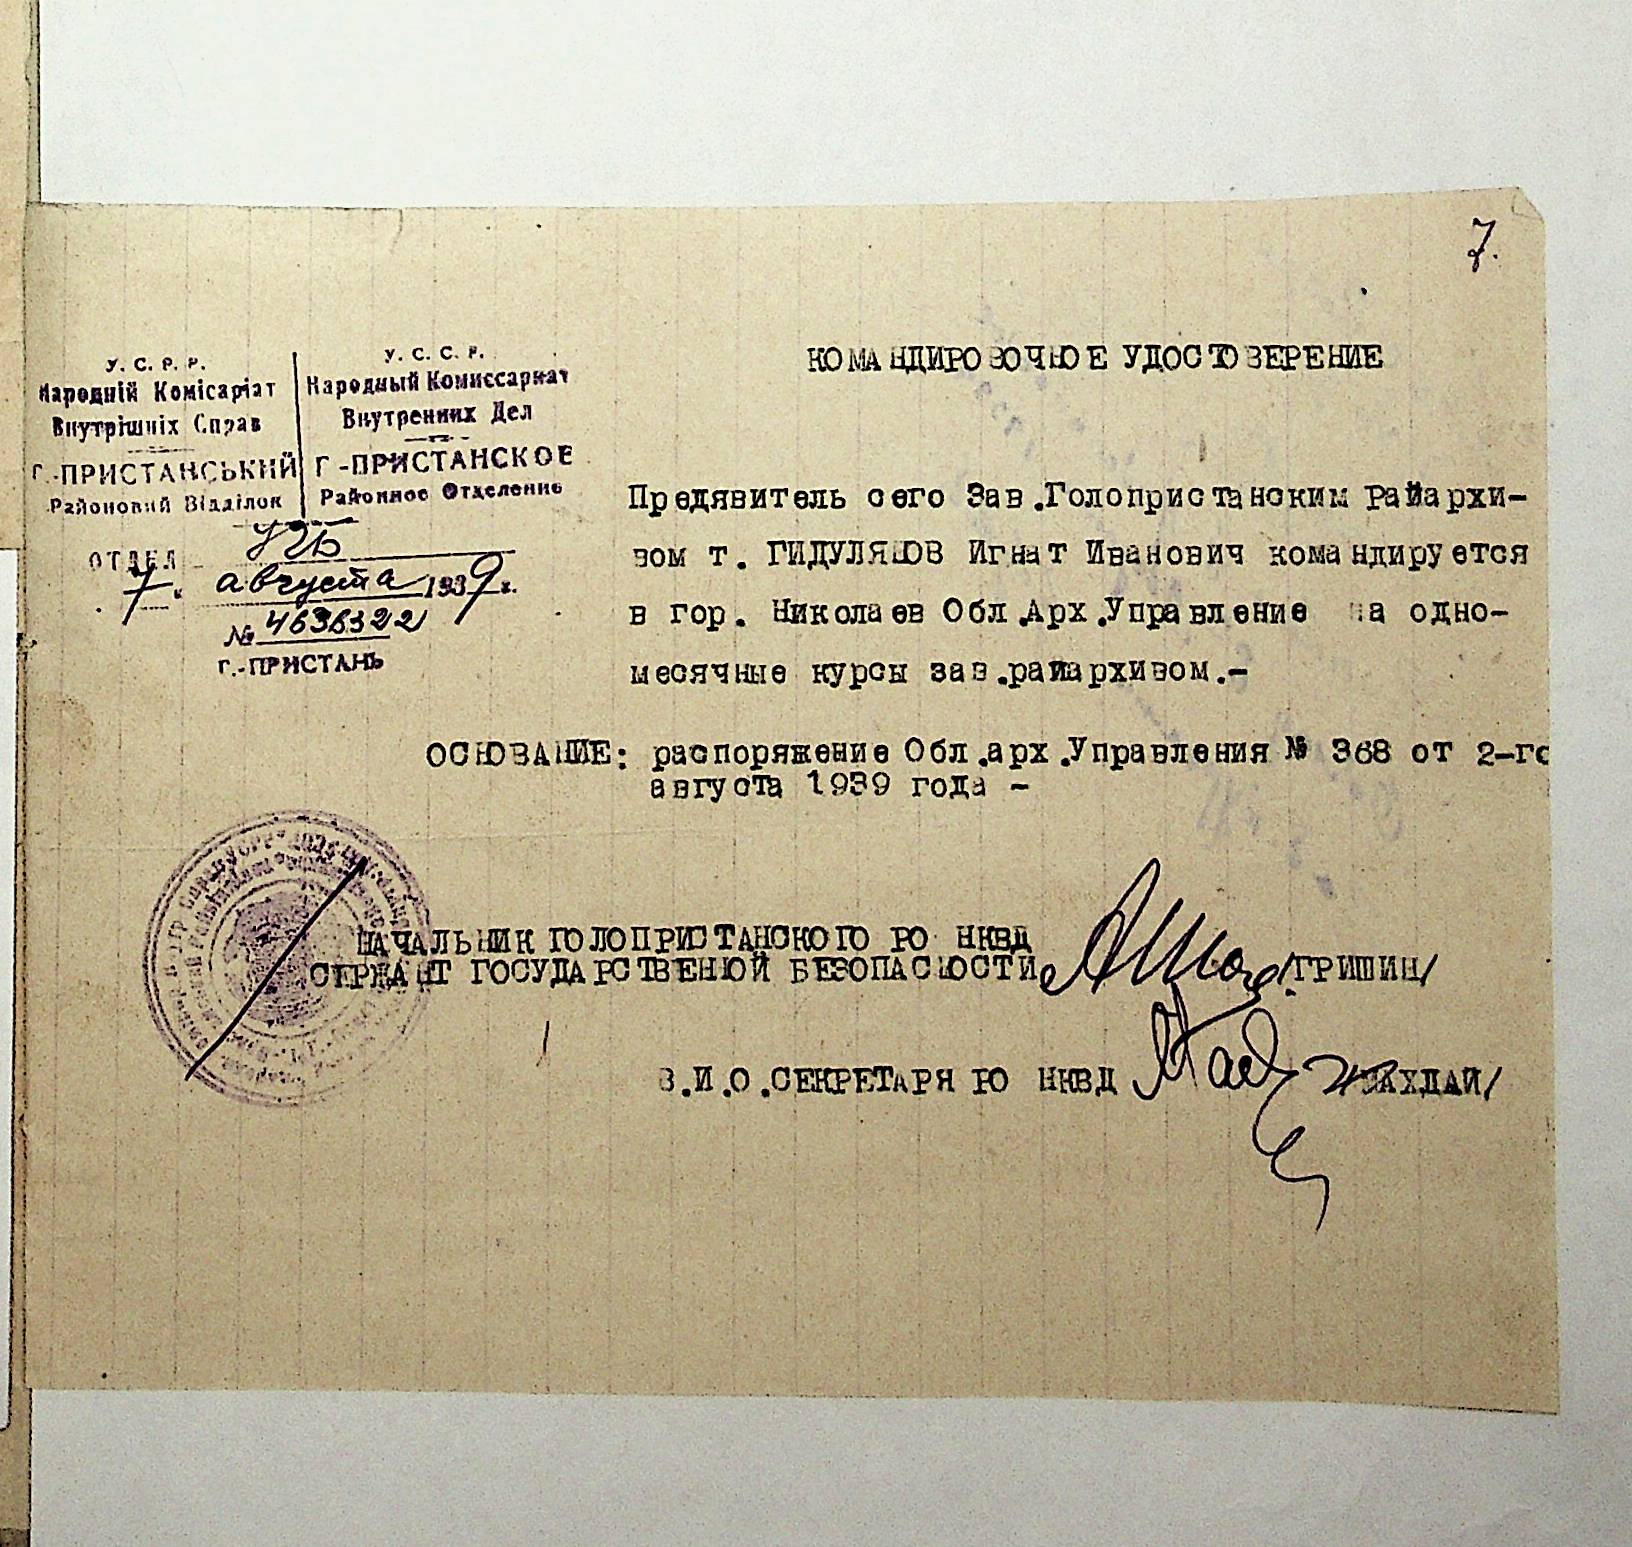 7.
У. С. Р. Р.
Народній Комісаріат
Внутрішніх Справ
Г.-ПРИСТАНСЬКИЙ
Районовий Відділок
У. С. С. Р.
Народный Комиссариат
Внутренних Дел
Г-ПРИСТАНСКОЕ
Районное Отделение
ОТДЕЛ
7 августа 1939 г.
№ 4636322
Г.-ПРИСТАНЬ
КОМАНДИРОВОЧНОЕ УДОСТОВЕРЕНИЕ
Предявитель сего Зав.Голопристанским Райархи-
вом т. ГИДУЛЯНОВ Игнат Иванович командируется
в гор. Николаев Обл.Арх.Управление на одно-
месячные курсы зав.райархивом.-
ОСНОВАНИЕ: распоряжение Обл.арх.Управления № 368 от 2-го
августа 1939 года -
НАЧАЛЬНИК ГОЛОПРИСТАНСКОГО РО НКВД
СЕРЖАНТ ГОСУДАРСТВЕННОЙ БЕЗОПАСНОСТИ /ГРИШИН/
В.И.О.СЕКРЕТАРЯ РО НКВД